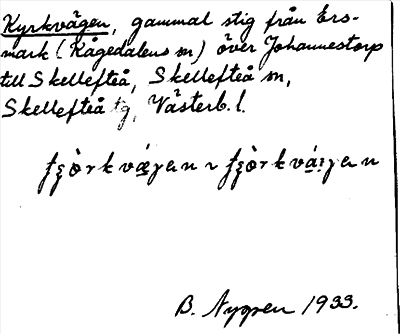 Kyrkvägen, gammal stig från Ers-
mark (Kågedalens sn) över Johannestorp
till Skellefteå, Skellefteå sn,
Skellefteå tg, Västerb. l.
B. Nygren 1933.